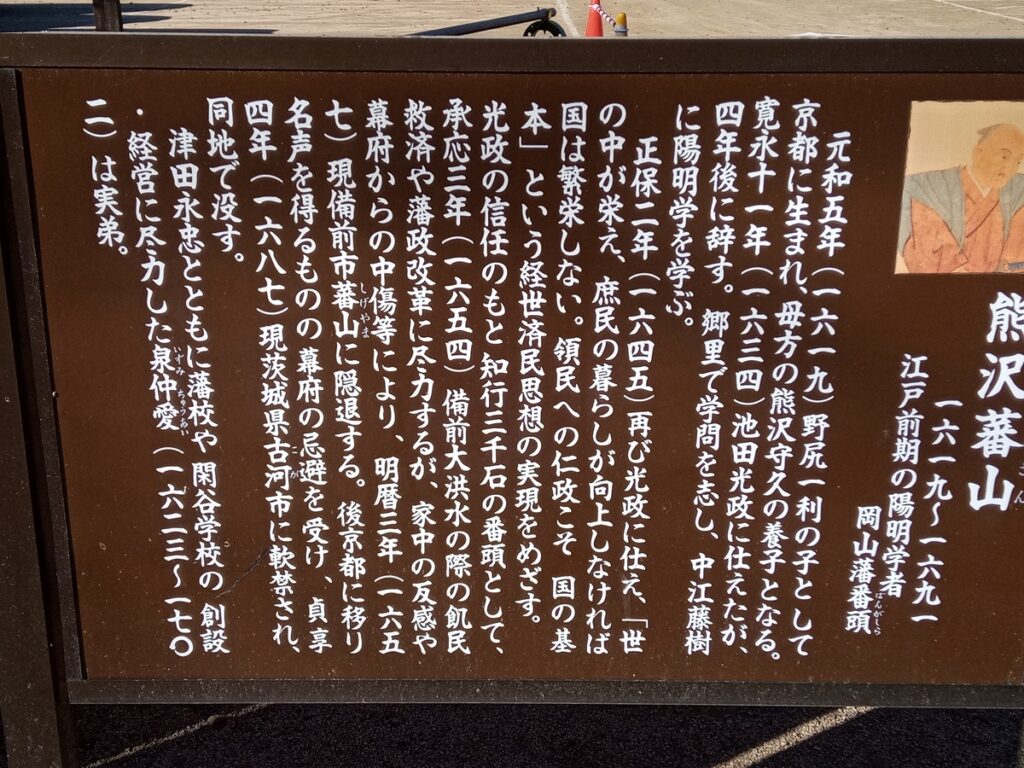 熊沢蕃山
一六一九～一六九一
江戸前期の陽明学者
岡山藩番頭
ばんがしら
元和五年（一六一九）野尻一利の子として
京都に生まれ、母方の熊沢守久の養子となる。
寛永十一年（一六三四）池田光政に仕えたが、
四年後に辞す。郷里で学問を志し、中江藤樹
に陽明学を学ぶ。
正保二年（一六四五）再び光政に仕え、「世
の中が栄え、庶民の暮らしが向上しなければ
国は繁栄しない。領民への仁政こそ 国の基
本」という経世済民思想の実現をめざす。
光政の信任のもと 知行三千石の番頭として、
承応三年（一六五四）備前大洪水の際の飢民
救済や藩政改革に尽力するが、家中の反感や
幕府からの中傷等により、明暦三年（一六五
七）現備前市蕃山に隠退する。後京都に移り
しげやま
名声を得るものの幕府の忌避を受け、貞享
四年（一六八七）現茨城県古河市に軟禁され、
こが
同地で没す。
津田永忠とともに藩校や 閑谷学校の 創設
・経営に尽力した泉仲愛（一六二三～一七〇
いずみ ちゅうあい
二）は実弟。